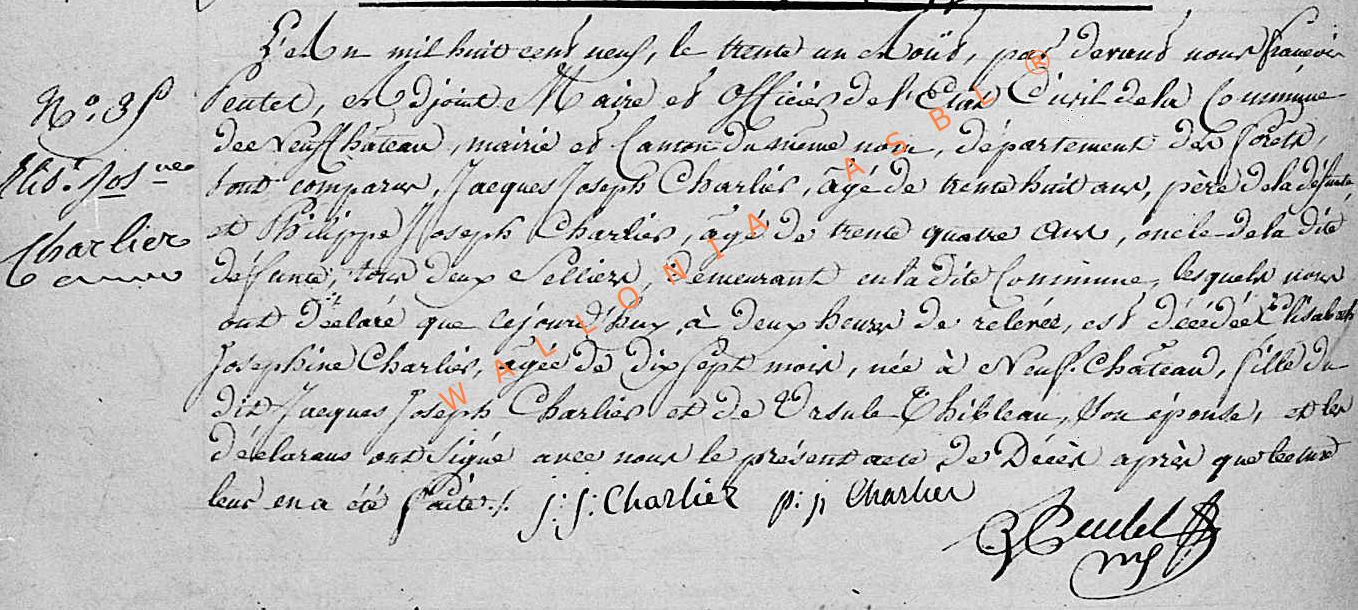 L'an mil huit cent neuf, le trente un Août, par devant nous françois
Peutet, adjoint Maire et Officier de l'Etat Civil de la Commune
de Neufchâteau, mairie et Canton du même nom, département des forêts,
sont comparus, Jacques Joseph Charlier, âgé de trente huit ans, père de la défunte
et Philippe Joseph Charlier, âgé de trente quatre ans, oncle de la dite
défunte, tous deux Selliers, demeurant en la dite Commune, lesquels nous
ont déclaré que cejourd'huy, à deux heures de relevée, est décédée Elisabeth
Josephine Charlier, âgée de dix sept mois, née à Neufchâteau, fille du
dit Jacques Joseph Charlier et de Ursule Thibleau, son épouse, et les
déclarans ont signé avec nous le présent acte de Décès après que lecture
leur en a été faite./. j: j: Charlier p: j: Charlier
N.o 35
Elis.t Jos.nee
Charlier
WALLONIA ASBL ®